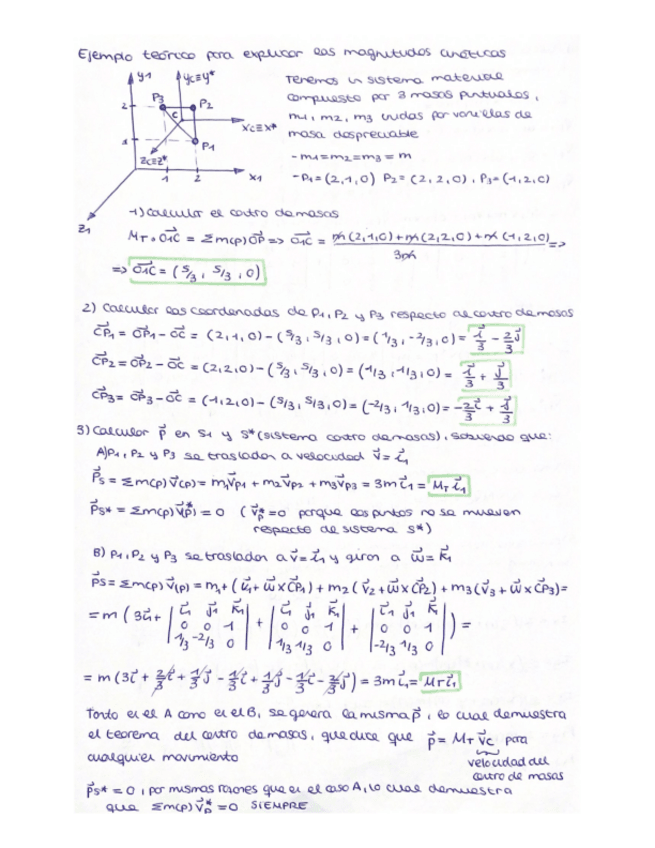 Ejemplo teórico para explicar las magnitudes cinéticas
y1 yc≡y*
Tenemos un sistema material
P3 P2
compuesto por 3 masas puntuales,
2
c
xc≡x*
m1, m2, m3 unidas por varillas de
masa despreciable
1
P1
zc≡z*
- m1=m2=m3 = m
1 2 x1
- P1=(2,1,0) P2=(2,2,0), P3=(1,2,0)
z1
1) Calcular el centro de masas
MT·O1C = Σm(p)OP => O1C = m(2,1,0)+m(2,2,0)+m(1,2,0) / 3m =>
=> O1C = (5/3, 5/3, 0)
2) Calcular las coordenadas de P1, P2 y P3 respecto al centro de masas
CP1 = OP1 - OC = (2,1,0) - (5/3, 5/3, 0) = (1/3, -2/3, 0) = i/3 - 2j/3
CP2 = OP2 - OC = (2,2,0) - (5/3, 5/3, 0) = (1/3, 1/3, 0) = i/3 + j/3
CP3 = OP3 - OC = (1,2,0) - (5/3, 5/3, 0) = (-2/3, 1/3, 0) = -2i/3 + j/3
3) Calcular p en S1 y S* (sistema centro de masas), sabiendo que:
A) P1, P2 y P3 se trasladan a velocidad v = i1
Ps = Σm(p) v(p) = m1vp1 + m2vp2 + m3vp3 = 3m i1 = MT i1
Ps* = Σm(p) v(p)* = 0 (vp* = 0 porque los puntos no se mueven
respecto de sistema S*)
B) P1, P2 y P3 se trasladan a v = i1 y giran a ω = k1
Ps = Σm(p) v(p) = m1(v1 + ω x CP1) + m2(v2 + ω x CP2) + m3(v3 + ω x CP3) =
= m ( 3i1 + | i1 j1 k1 | + | i1 j1 k1 | + | i1 j1 k1 | ) =
0 0 1 0 0 1 0 0 1
1/3 -2/3 0 1/3 1/3 0 -2/3 1/3 0
= m (3i + 2/3 i + 1/3 j - 1/3 i + 1/3 j - 1/3 i - 2/3 j) = 3m i1 = MT i1
Tanto en el A como en el B, se genera la misma p, lo cual demuestra
el teorema del centro de masas, que dice que p = MT vc para
cualquier movimiento
velocidad del
centro de masas
Ps* = 0, por mismas razones que en el caso A, lo cual demuestra
que Σm(p) vp* = 0 SIEMPRE